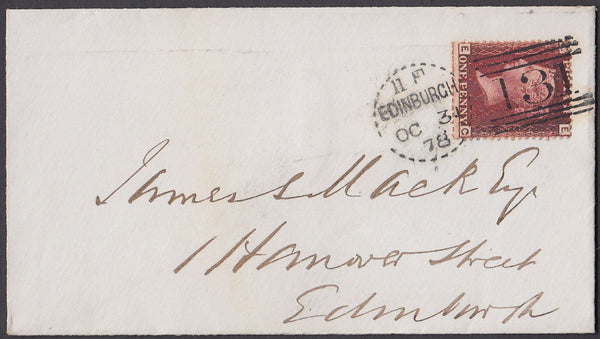 11 F
EDINBURGH
OC 3
78
131
ONE PENNY
E C
E
James Mack Esq
1 Hanover Street
Edinburgh